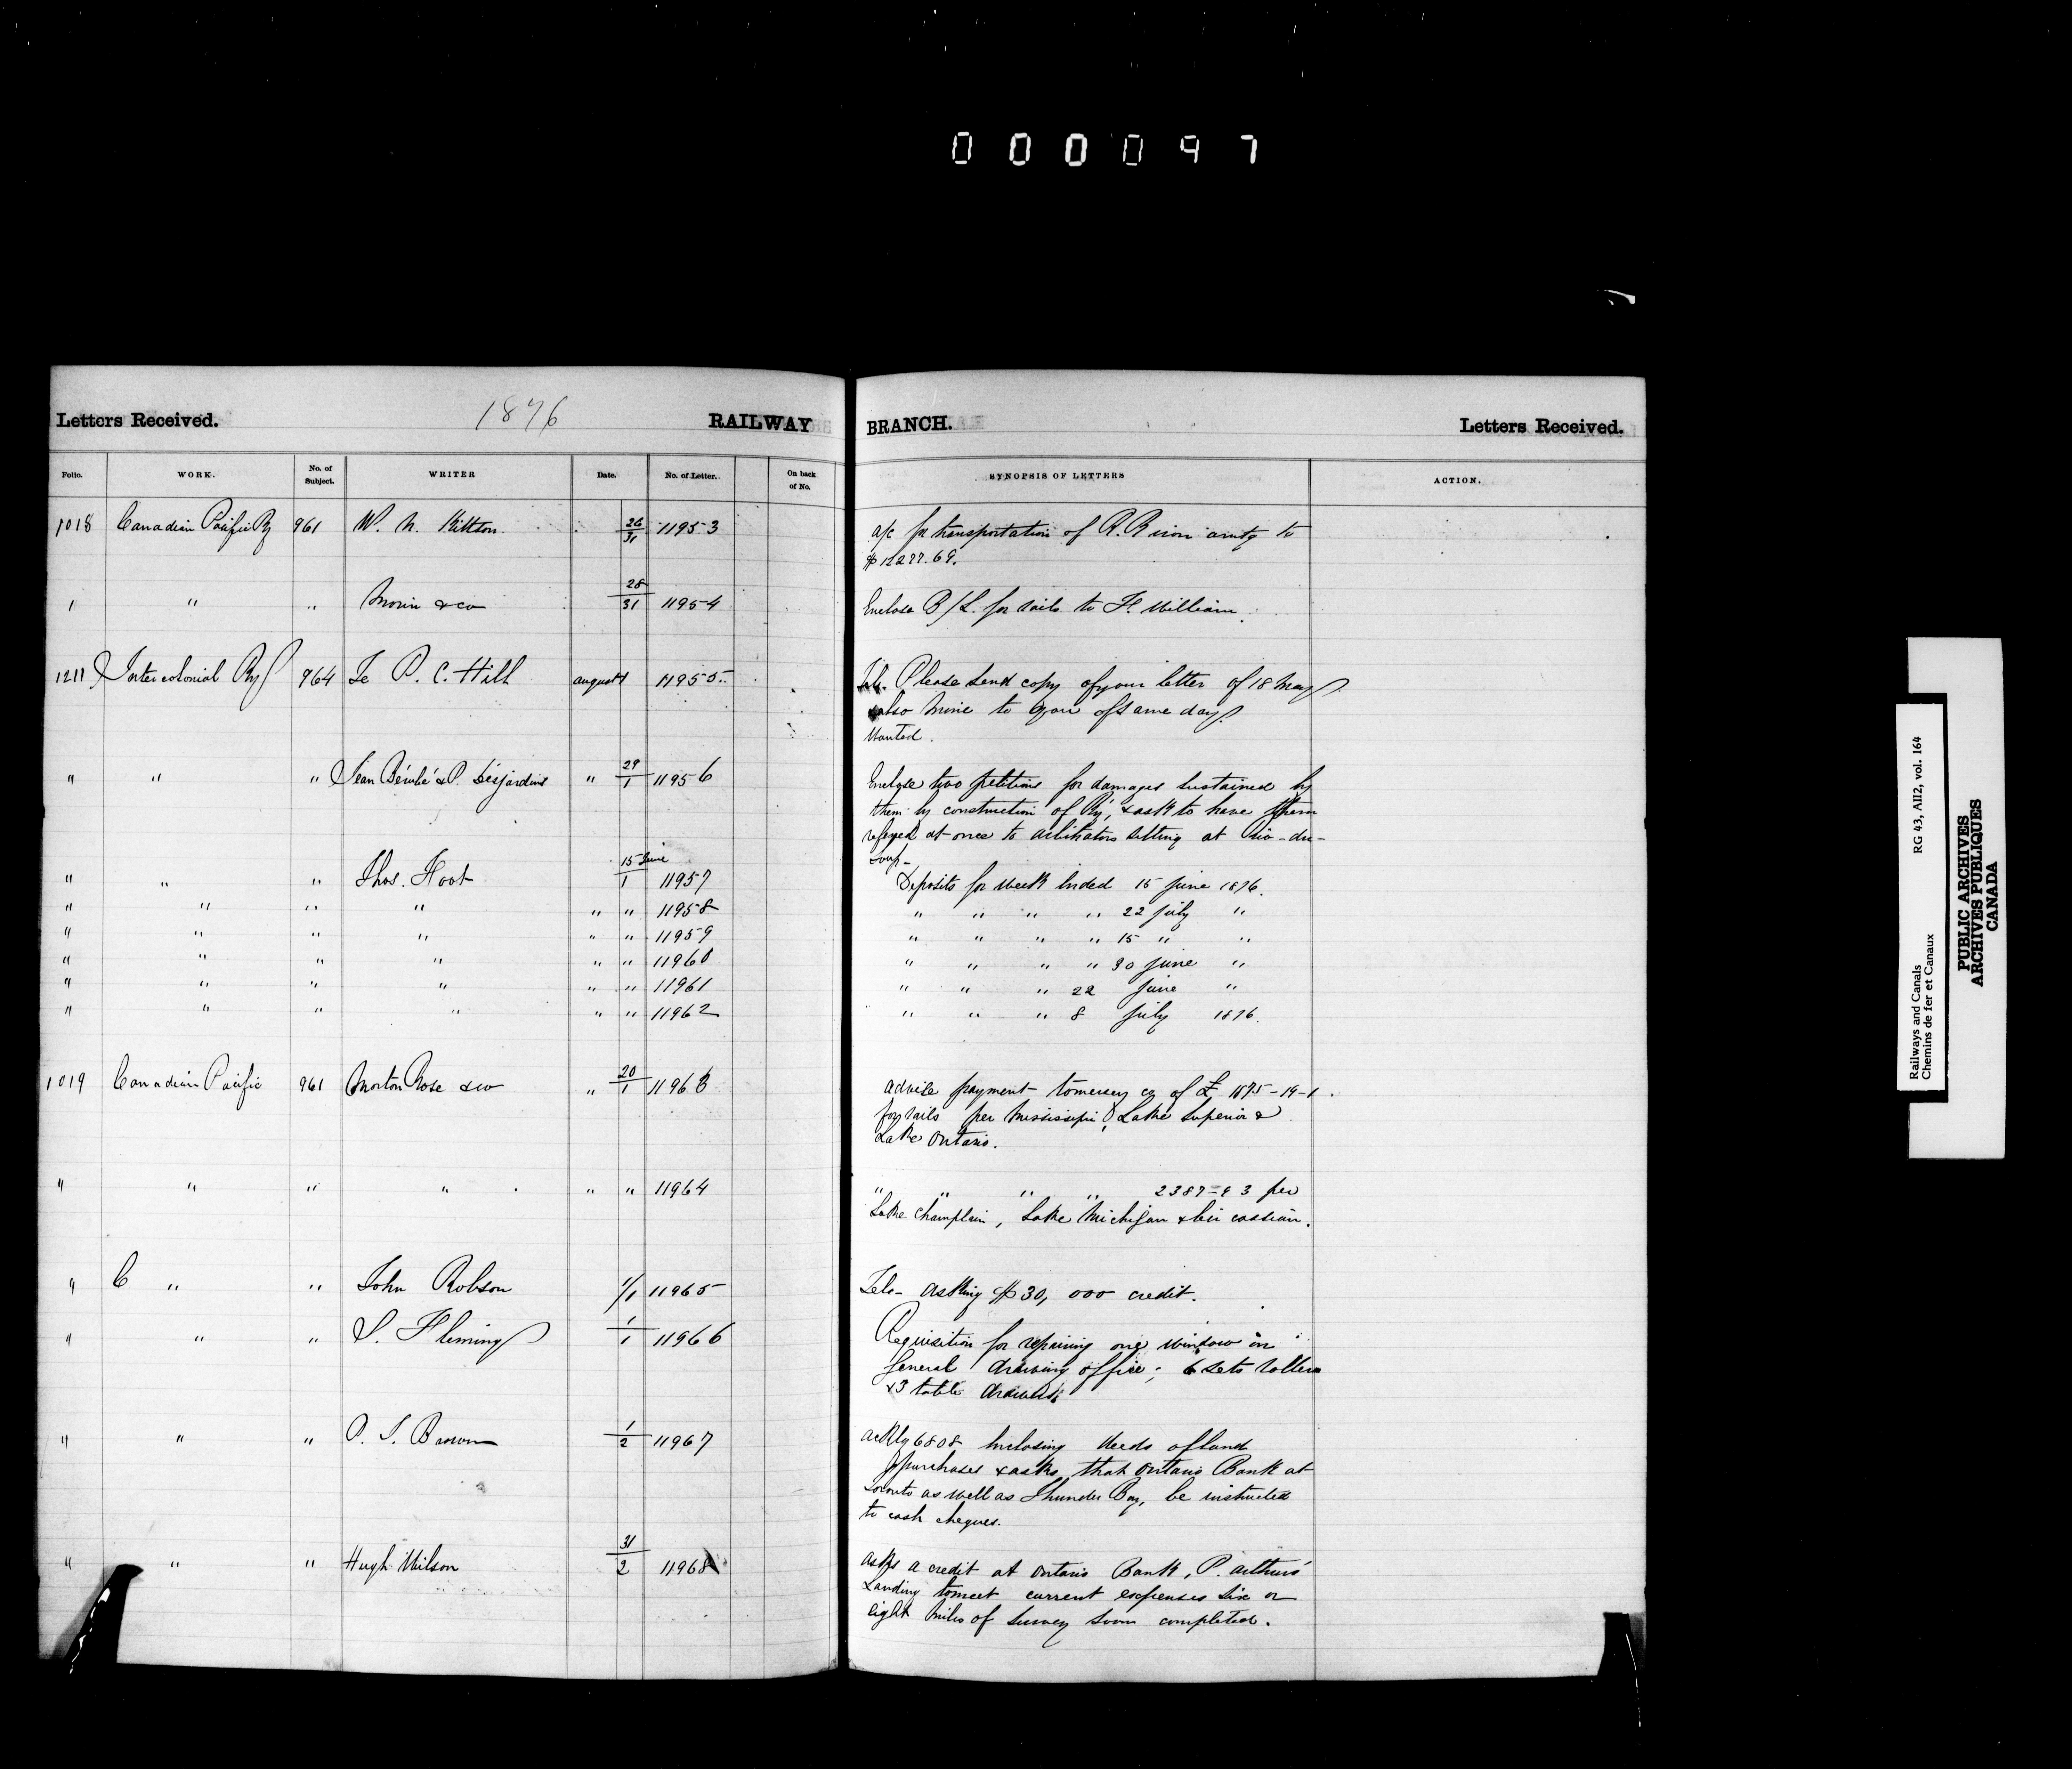 000097
Letters Received. 1876 RAILWAY BRANCH. Letters Received.
Folio. WORK. No. of Subject. WRITER Date. No. of Letter. On back of No. SYNOPSIS OF LETTERS ACTION.
1018 Canadian Pacific Ry 961 W. N. Kittson 26/31 11953 a/c for transportation of R.R iron amtg to
$12277.69.
" " " Morin & co 28/31 11954 Enclose B/L. for rails to Ft. William.
1211 Intercolonial Ry 964 Te P. C. Hill august 1 11955 Tel. Please send copy of your letter of 18 May
& also mine to you of same day.
Wanted.
" " " Jean Bérubé & P. Desjardins " 29/1 11956 Enclose two petitions for damages sustained by
them by construction of Ry, & ask to have them
refered at once to arbitrators sitting at Riv-du-
Loup-
" " " Thos. Foot 15 June/1 11957 Deposits for week ended 15 June 1876.
" " " " " " 11958 " " " " 22 july "
" " " " " " 11959 " " " " 15 " "
" " " " " " 11960 " " " " 30 june "
" " " " " " 11961 " " " 22 june "
" " " " " " 11962 " " " 8 july 1876.
1019 Canadian Pacific 961 Morton Rose & co " 20/1 11963 advise payment to mersey co of £ 1875-19-1.
for rails per Mississipi, Lake Superior &
Lake Ontario.
" " " " " " 11964 " " " " 2387-8 3 per
Lake Champlain, Lake Michigan & Circassian.
" C " " John Robson 1/1 11965 Tele- asking $30,000 credit.
" " " S. Fleming 1/1 11966 Requisition for repairing one window in
General drawing office; 6 sets rollers
& 3 table drawers.
" " " P. J. Brown 1/2 11967 ackly 6808 inclosing deeds of land
purchases & asks that Ontario Bank at
Toronto as well as Thunder Bay, be instructed
to cash cheques.
" " " Hugh Wilson 31/2 11968 asks a credit at Ontario Bank, P. Arthurs
Landing to meet current expenses six or
eight miles of survey soon completed.
Railways and Canals RG 43, AII2, vol. 164
Chemins de fer et Canaux
PUBLIC ARCHIVES
ARCHIVES PUBLIQUES
CANADA